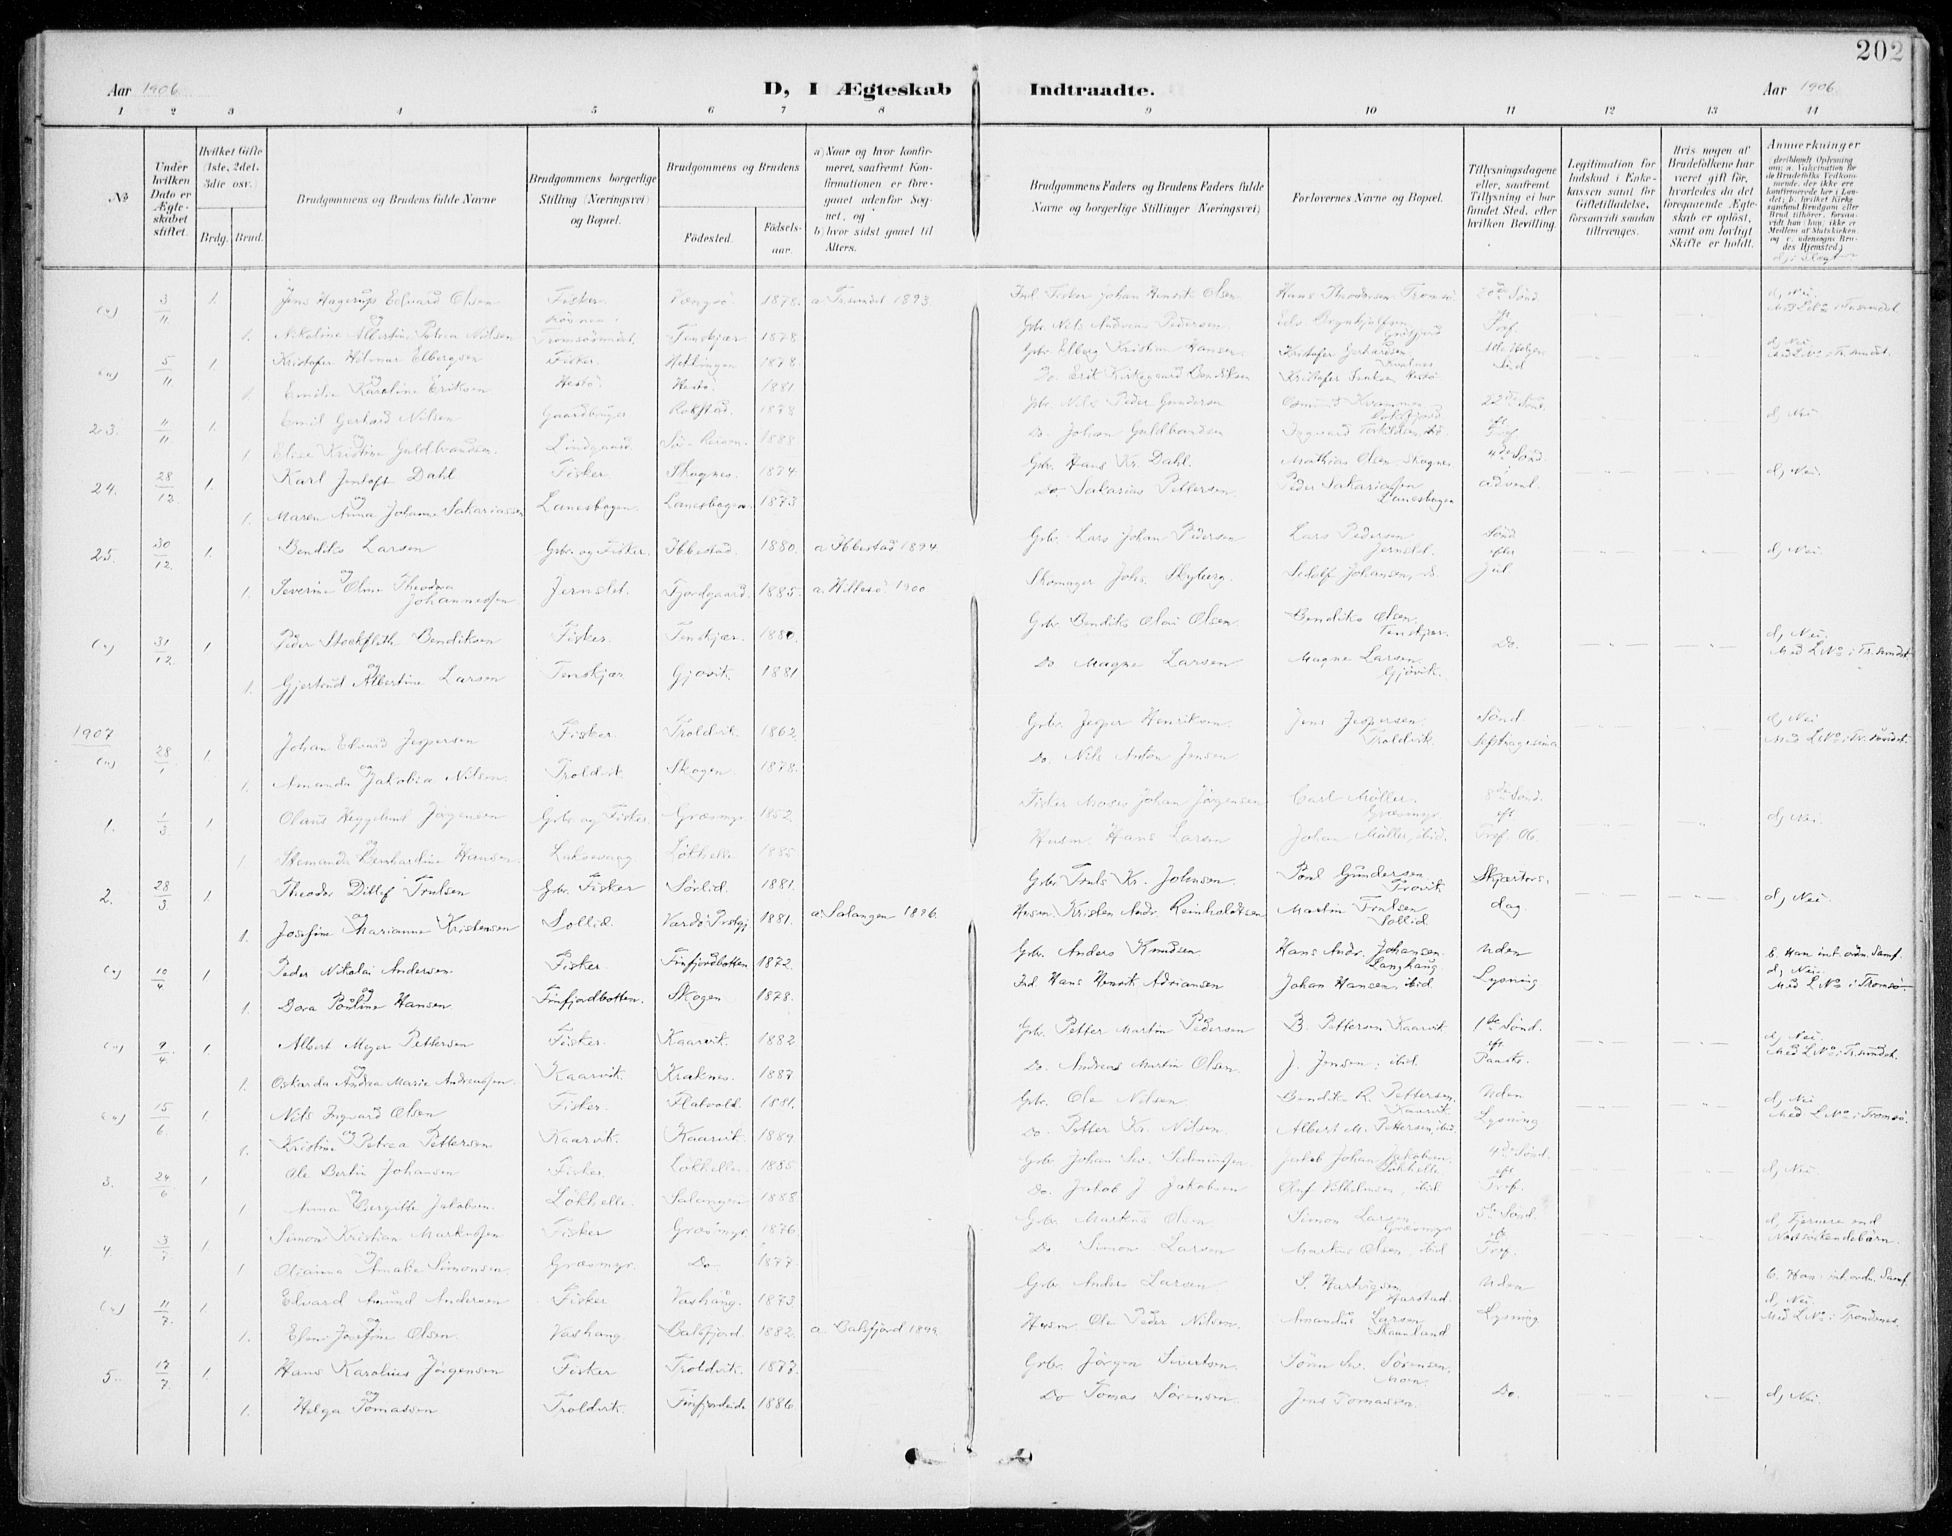 202
Aar 1906
D, I Ægteskab Indtraadte.
Aar 1906
1 2 3 4 5 6 7 8 9 10 11 12 13 14
No
Under hvilken Dato er Ægteskabet stiftet.
Hvilket Gifte (1ste, 2det, 3die osv.)
Brdg. Brud.
Brudgommens og Brudens fulde Navne
Brudgommens borgerlige Stilling (Næringsvei) og Bopæl.
Brudgommens og Brudens
Fødested. Fødselsaar.
a) Naar og hvor konfirmeret, saafremt Konfirmationen er foregaaet udenfor Sognet, og
b) hvor sidst gaaet til Alters.
Brudgommens Faders og Brudens Faders fulde Navne og borgerlige Stillinger (Næringsvei)
Forlovernes Navne og Bopæl.
Tillysningsdagene eller, saafremt Tillysning ei har fundet Sted, efter hvilken Bevilling.
Legitimation for Indskud i Enkekassen samt for Giftetilladelse, forsaavidt saadan tiltrænges.
Hvis nogen af Brudefolkene har været gift før, hvorledes da det foregaaende Ægteskab er opløst, samt om lovligt Skifte er holdt.
Anmerkninger
(") 3/11 1. Jens Hagerup Edvard Olsen Fisker Vængsö 1878. a Tr.sundet 1893. Ind. Fisker Johan Henrik Olsen Hans Theodorsen Tromsö 20de Sönd. d, Nei. Med L.No i Tr.sundet
og
1. Nikoline Albertine Petrea Nilsen Tromsösundet Tenskjær 1878 Gbr. Nils Andreas Pedersen eft Tref.
(") 5/11 1. Kristofer Hilmar Elbergsen Fisker Hellingen 1878 Gbr. Elberg Kristian Hansen Kristofer Gerhardsen d, Nei Med L.No i Tr.sundet
og
1. Emilie Karoline Eriksen Hestö Hestö 1881 Do. Erik Kirkegaard Bendiksen Kristofer Hestö
23. 11/11 1. Emil Gerhard Nilsen Gaardbruger Rokstad. 1878 Gbr. Nils Peder Gundersen 22de Sönd. d, Nei
og
1. Elise Kristine Guldbrandsen Lindgaard 1888 Do. Johan Guldbrandsen Ingvard Torkildsen, ibid. eft Tref.
24. 28/12 1. Karl Jentoft Dahl Fisker Skognes. 1874. Gbr. Hans Kr. Dahl. Mathias Olsen, Skognes 4de Sönd. d, Nei.
og
1. Maren Anna Johanne Sakariassen Lanesbogen. Lanesbogen 1873 Do. Sakarias Pettersen Peder Sakariassen Lanesbogen i advent.
25. 30/12. 1. Bendiks Larsen Gbr. og Fisker. Ibbestad. 1880. a Ibbestad 1894. Gbr. Lars Johan Pedersen Lars Pedersen Jernslet. Sönd efter d, Nei
og
1. Severine Oline Theodora Johannessen Jernslet. Fjordgaard 1885. a. Hillesö 1900 Skomager Johs. Skyberg. Sedolf Johansen, do. Jul.
(") 31/12 1 Peder Stockfleth Bendiksen Fisker. Tenskjær. 1880. Gbr. Bendiks Olai Olsen. Bendiks Olsen. Tenskjær Do. d, Nei. Med L.No i Tr.sundet
og
1. Gjertrud Albertine Larsen Tenskjær Gjövik. 1881 Do Magne Larsen Magne Larsen Gjövik.
1907
(") 28/1 1. Johan Edvard Jespersen Fisker. Troldvik. 1862. Gbr. Jesper Henriksen. Jens Jespersen Troldvik. Sönd Septuagesima d, Nei Med L.No i Tr.sundet.
og
1. Amanda Jakobia Nilsen Troldvik Skogen 1878. Do. Nils Anton Jensen
1. 1/3. 1 Olaus Heggelund Jörgensen Gbr. og Fisker. Græsmyr 1852. Fisker Moses Johan Jörgensen Carl Möller. Græsmyr. 8de Sönd. eft d, Nei.
og
1. Stemanda Bernhardine Hansen. Laksevaag Lökhelle 1885 Husm. Hans Larsen Johan Möller, ibid. Tref. 06.
2. 28/3 1. Theodor Ditlef Trulsen Gbr. Fisker Sörlid. 1881. Gbr. Truls Kr. Johnsen. Poul Gundersen Trovik Skjærtors- d, Nei.
og
1. Josefine Marianne Kristensen Sollid. Vardö Prstgj. 1881. a Salangen 1896. Husm. Kristen Andr. Reinholdtsen Martin Trulsen Sollid dag.
(") 10/4 1 Peder Nikolai Andersen Fisker. Finfjordbotten 1872. Gbr. Anders Knudsen Hans Andr. Johansen. Langhaug. Uden b. Han int. ordn. Samf. d, Nei. Med L.No i Tromsö
og
1. Dora Pauline Hansen Finfjordbotten. Skogen 1878. Ind. Hans Henrik Adriansen Johan Hansen, ibid Lysning
(") 9/4. 1. Albert Meyer Pettersen Fisker. Kaarvik 1882 Gbr. Petter Martin Pedersen B. Pettersen Kaarvik 1ste Sönd. eft d, Nei Med L.No i Tr.sundet.
og
1. Oskarda Andrea Marie Andreassen. Kaarvik. Kraknes. 1887. Do. Andreas Martin Olsen. J. Jensen, ibid Paaske.
(") 15/6 1. Nils Ingvard Olsen Fisker. Flatvold. 1881. Gbr. Ole Nilsen. Bendiks R. Pettersen Kaarvik Uden d, Nei Med L.No i Tromsö.
og
1. Kristine Petrea Pettersen Kaarvik. Kaarvik. 1889. Do. Petter Kr. Nilsen. Albert M. Pettersen, ibid Lysning
3. 24/6 1. Ole Bertin Johansen Fisker Lökhelle 1885. Gbr. Johan Jakob Johan Jakobsen Lökhelle 4de Sönd. eft d, Nei.
og
1 Anna Bergitte Jakobsen. Lökhelle. Salangen 1888 Do. Jakob J. Jakobsen Oluf Vilhelmsen, ibid Tref.
4. 3/7 1. Simon Kristian Markussen Fisker Græsmyr. 1876 Gbr. Markus Olsen Simon Larsen Græsmyr 5te Sönd. eft d, Fjernere end Næstsöskendebarn.
og
1 Otianna Amalie Simonsen. Græsmyr. Do. 1877. Do Simon Larsen Markus Olsen, ibid Tref.
(") 11/7. 1. Edvard Amund Andersen Fisker Vashaug. 1873. Gbr. Anders Larsen S. Hartvigsen Harstad. Uden b. Han int. ordn. Samf. d, Nei. Med L.No i Trondenes.
og
1. Elen Josefine Olsen. Vashaug Balsfjord. 1882. a. Balsfjord 1899. Husm Ole Peder Nilsen. Amandus Larsen Skaanland Lysning
5. 17/7. 1. Hans Karolius Jörgensen Fisker Troldvik. 1877. Gbr. Jörgen Sivertsen. Sören Sv. Sörensen. Moen. Do. d, Nei
og
1. Helga Tomassen Troldvik. Finfjordeide 1886. Do Tomas Sörensen. Jens Tomassen.